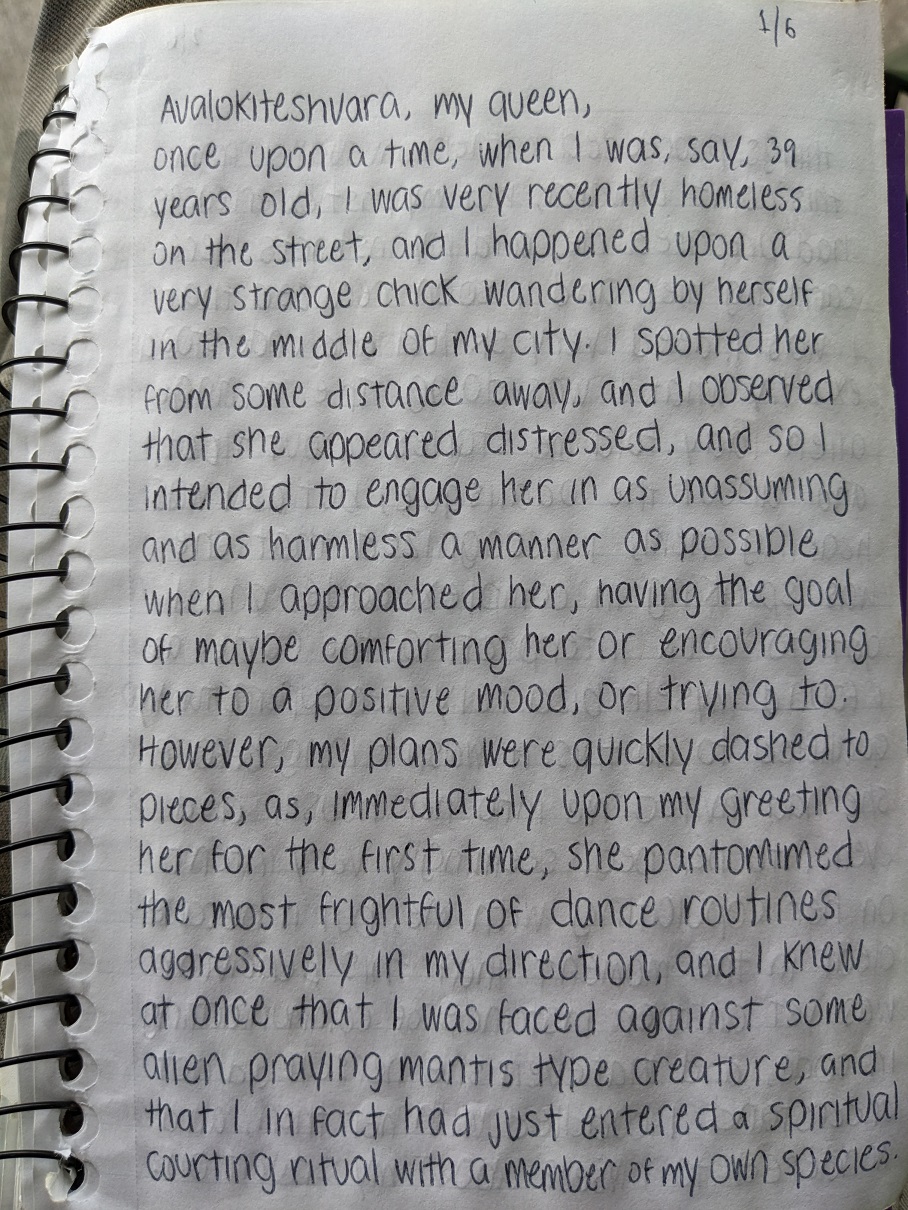 1/6
Avalokiteshvara, my queen,
once upon a time, when I was, say, 39
years old, I was very recently homeless
on the street, and I happened upon a
very strange chick wandering by herself
in the middle of my city. I spotted her
from some distance away, and I observed
that she appeared distressed, and so I
intended to engage her in as unassuming
and as harmless a manner as possible
when I approached her, having the goal
of maybe comforting her or encouraging
her to a positive mood, or trying to.
However, my plans were quickly dashed to
pieces, as, immediately upon my greeting
her for the first time, she pantomimed
the most frightful of dance routines
aggressively in my direction, and I knew
at once that I was faced against some
alien praying mantis type creature, and
that I in fact had just entered a spiritual
courting ritual with a member of my own species.